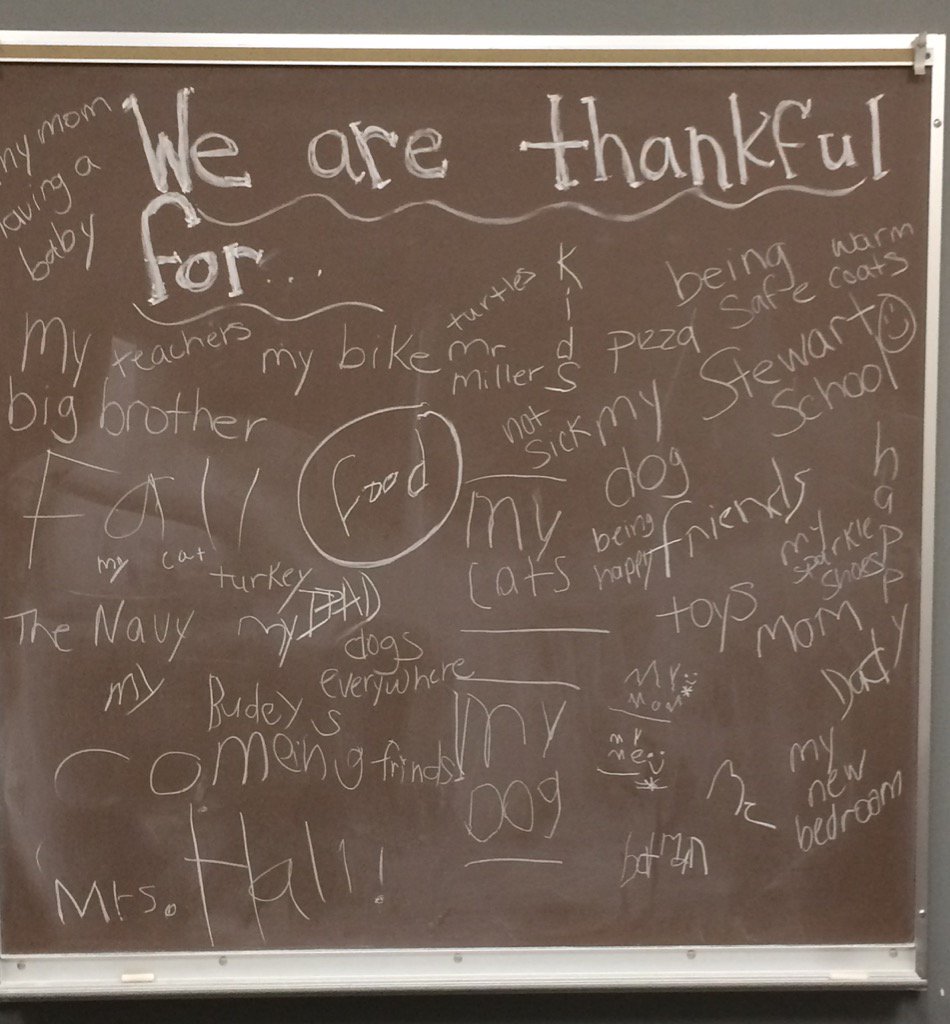 We are thankful
for...
my mom
having a
baby
My
big brother
teachers
my bike
turtles
mr
miller
Kids
pizza
being
safe
warm
coats
Stewart
School
not
sick
my
dog
Fall
Food
my
cats
being
happy
friends
my
sparkle
shoes
happy
my cat
turkey
The Navy
my DAD
dogs
everywhere
toys
mom
Dady
my
Budeys
comeing
frinds
my
DOg
my
new
bedroom
batman
Mrs. Hall!